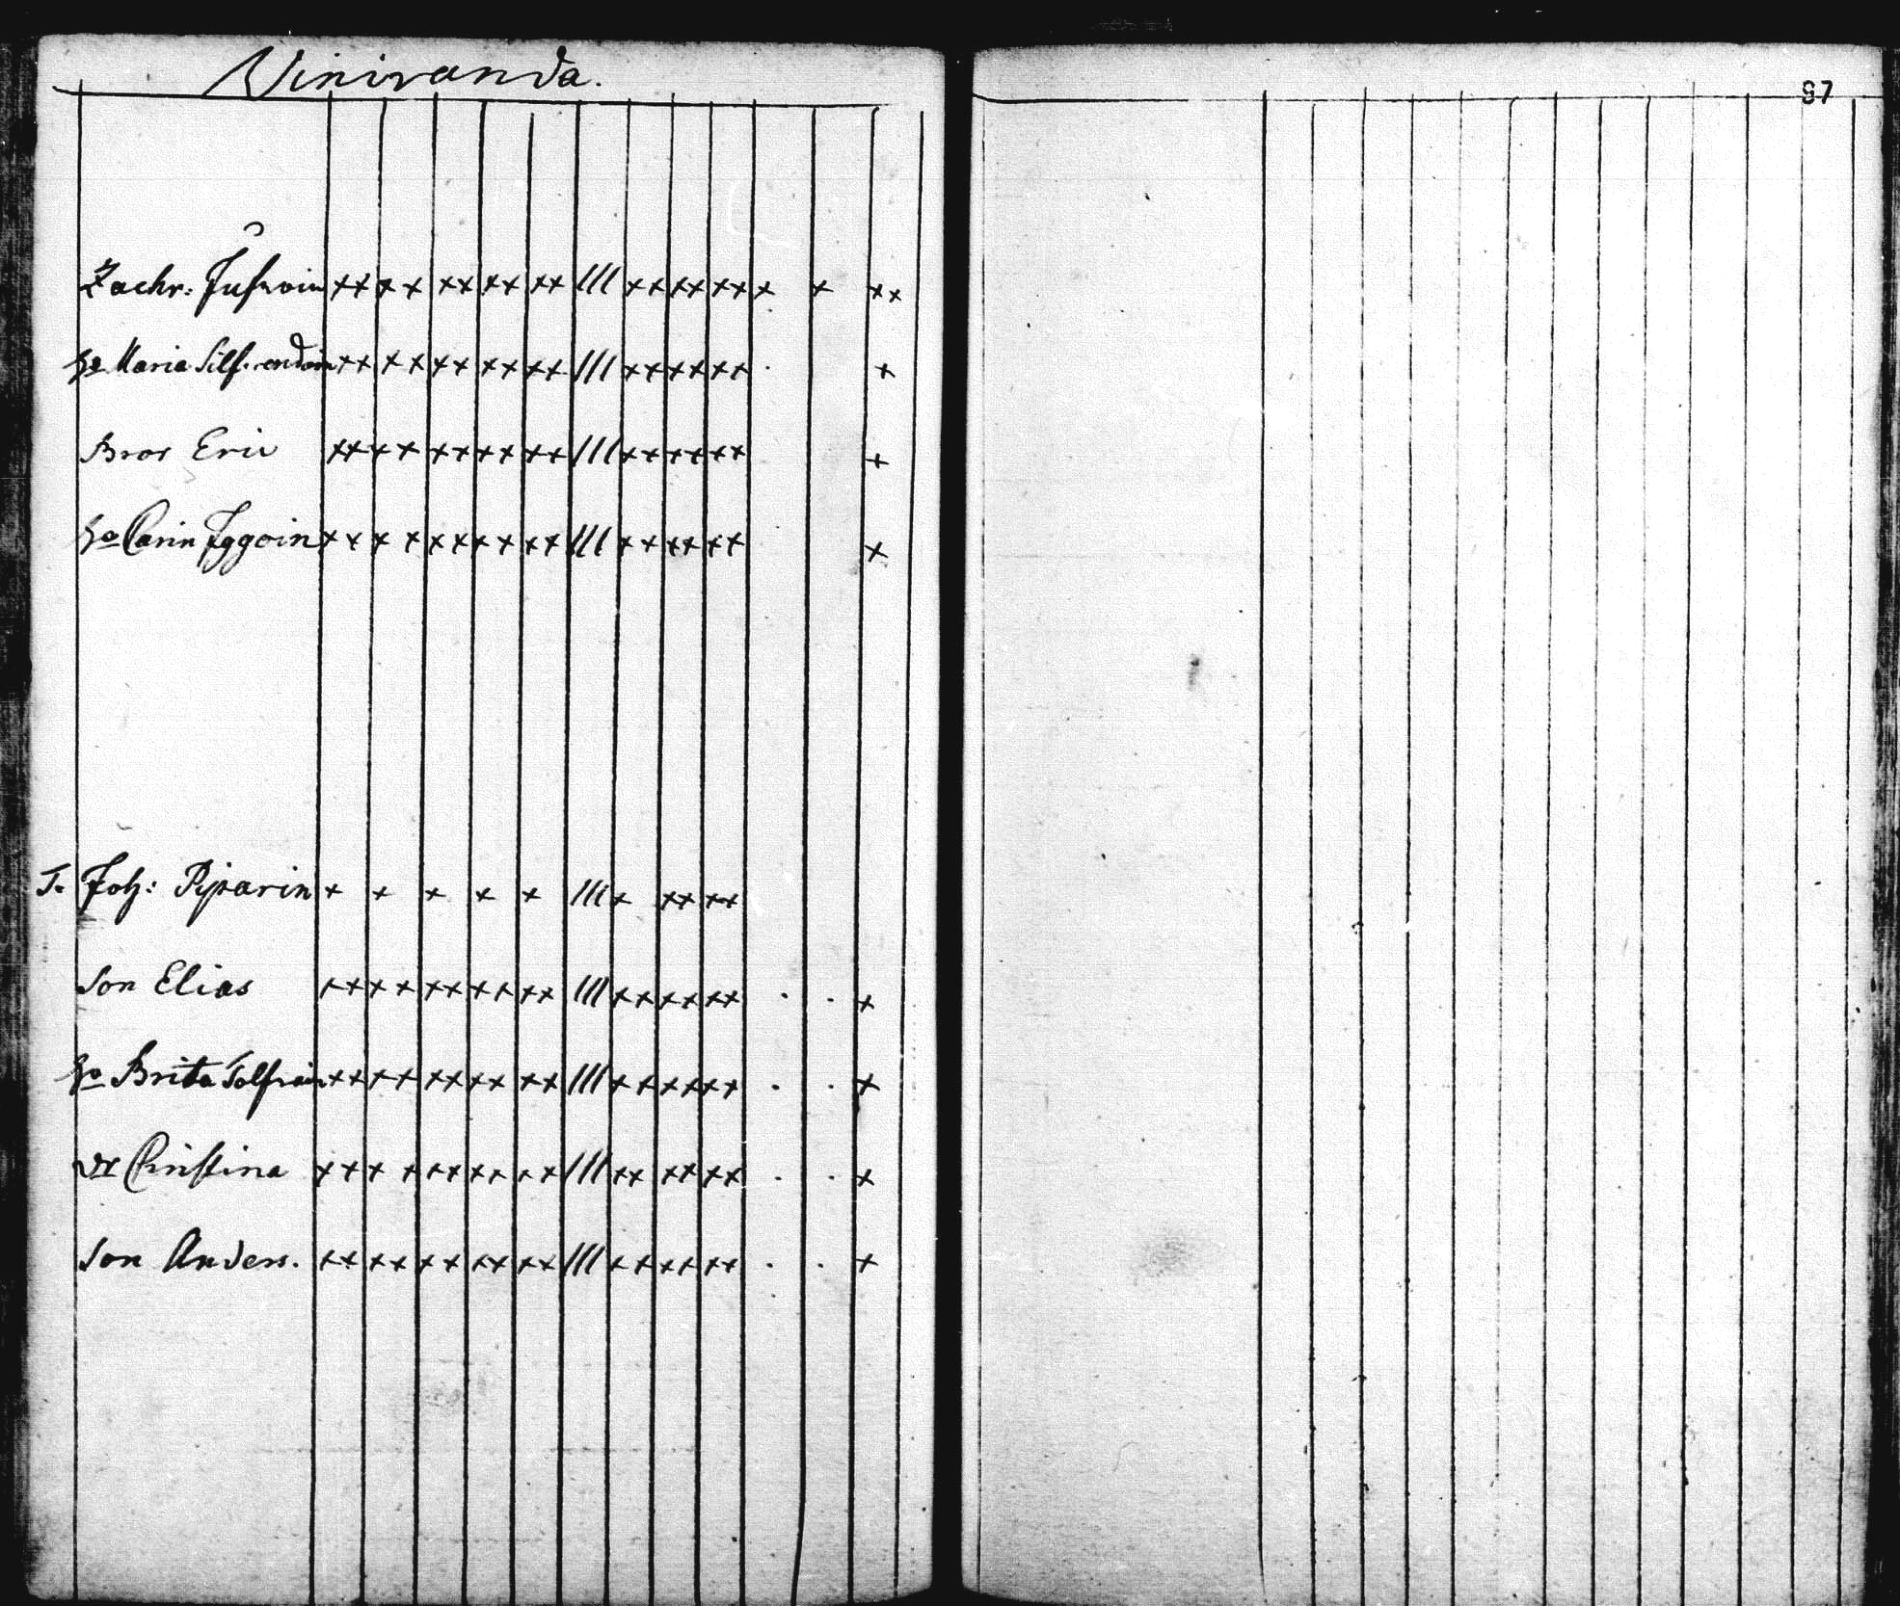 Viniranda.
87
Zachr: Jufvoin ×× ×× ×× ×× ×× /// ×× ×× ×× × × ××
ho Maria Silfvendoin ×× ×× ×× ×× ×× /// ×× ×× ×× · ×
Bror Eric ×× ×× ×× ×× ×× /// ×× ×× ×× ×
ho Carin Iggoin ×× ×× ×× ×× ×× /// ×× ×× ×× ×
J. Joh: Piparin × × × × × /// × ×× ××
Son Elias ×× ×× ×× ×× ×× /// ×× ×× ×× · · ×
ho Brita Tolfvoin ×× ×× ×× ×× ×× /// ×× ×× ×× · · ×
Christina ×× ×× ×× ×× ×× /// ×× ×× ×× · · ×
Son Anders. ×× ×× ×× ×× ×× /// ×× ×× ×× · · ×